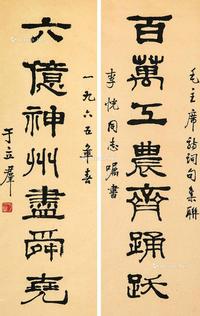 毛主席詩詞句集聯
百萬工農齊踊跃
李悅同志囑書
六億神州盡舜堯
一九六五年春
于立群